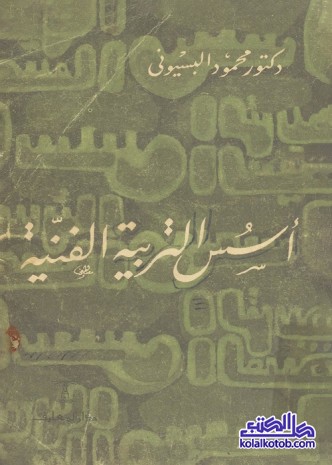 دكتور محمود البسيوني
أسس التربية الفنية
كل الكتب
kolalkotob.com